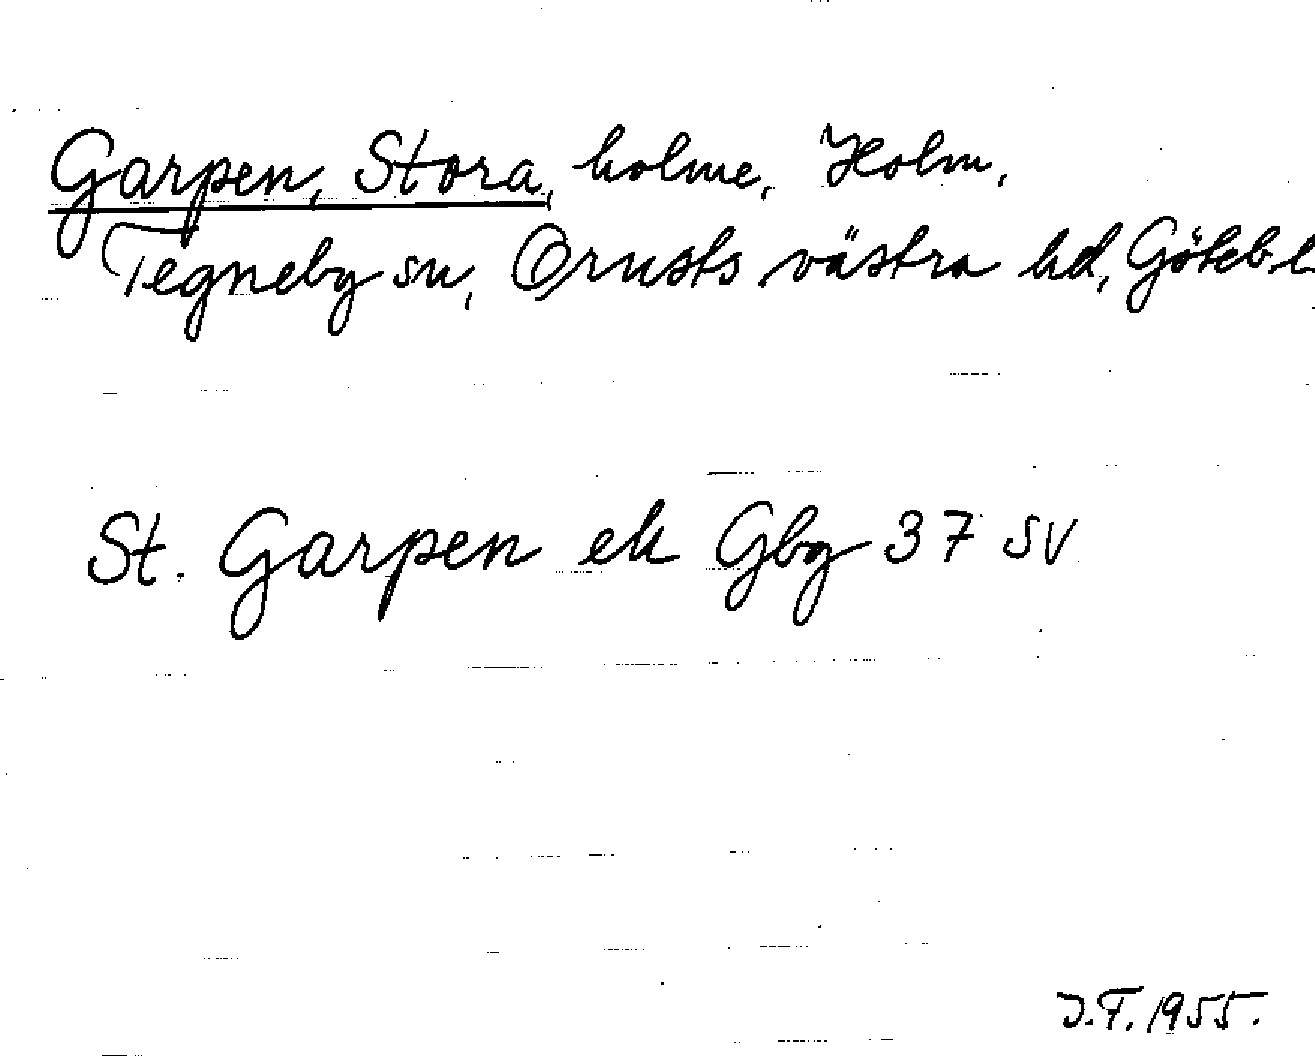 Garpen, Stora, holme, Holm,
Tegneby sn, Orusts västra hd, Göteb. l
St. Garpen ek Gbg 37 SV
J.F. 1955.